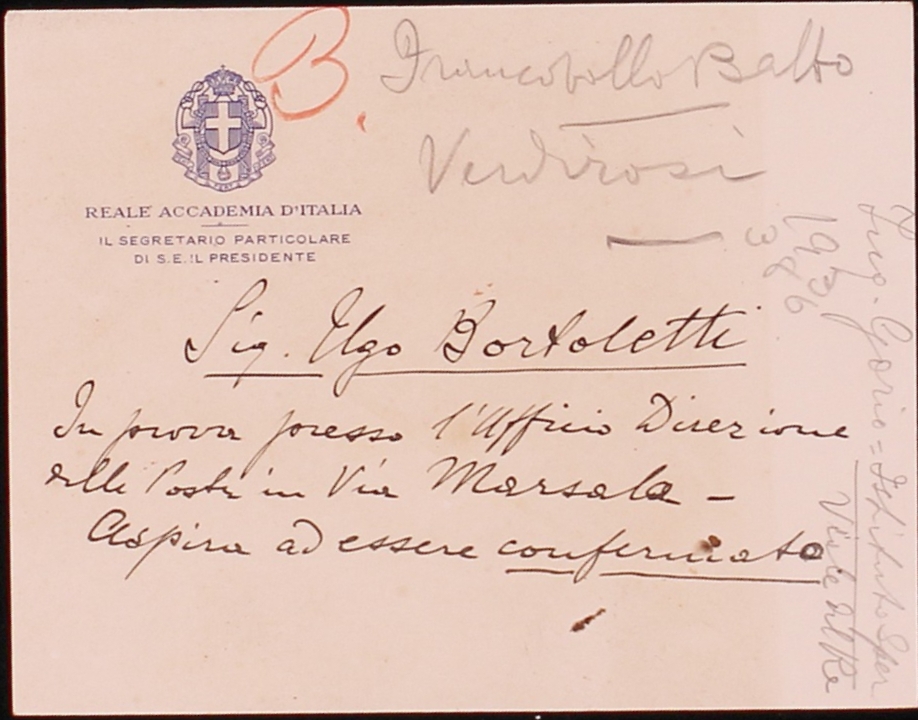 B.
Francobollo Balbo
Verdirosi
REALE ACCADEMIA D'ITALIA
IL SEGRETARIO PARTICOLARE
DI S.E. IL PRESIDENTE
Sig. Ugo Bortoletti
In prova presso l'Ufficio Direzione
delle Poste in Via Marsala –
Aspira ad essere confermato
Ing. Gorio = Istituto Sper
Viale del Re
1936
386